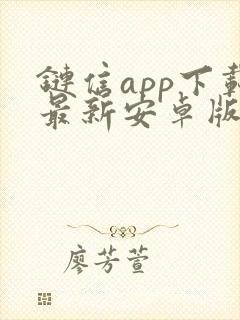 鏈信app下載
最新安卓版
廖芳萱